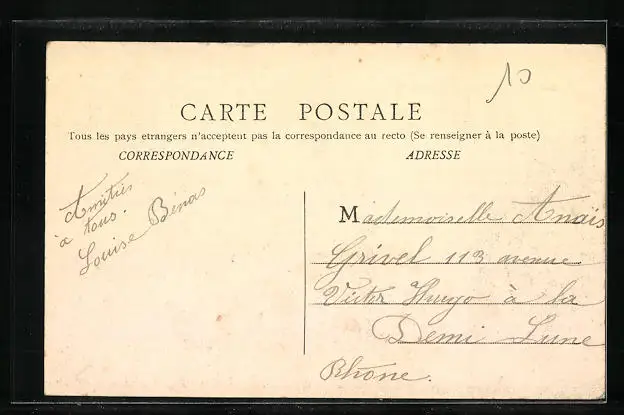 10
CARTE POSTALE
Tous les pays etrangers n'acceptent pas la correspondance au recto (Se renseigner à la poste)
CORRESPONDANCE
ADRESSE
Amitiés
à tous.
Louise Bénas
Mademoiselle Anaïs
Grivel 113 avenue
Victor Hugo à la
Demi Lune
Rhône.